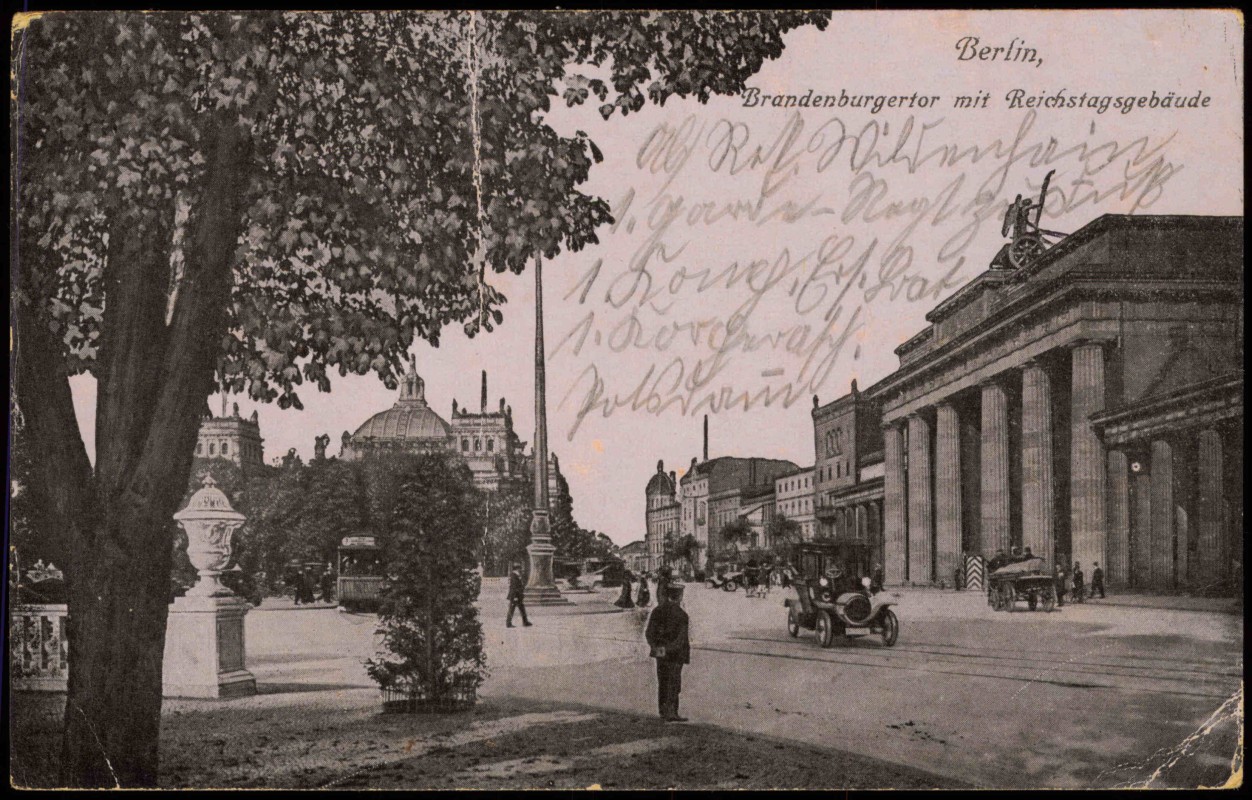 Berlin,
Brandenburgertor mit Reichstagsgebäude
Abs. Wildenhain
1. Garde-Regt zu Fuß
1. Komp. Ers. Bat
1. Korporalsch.
Potsdam